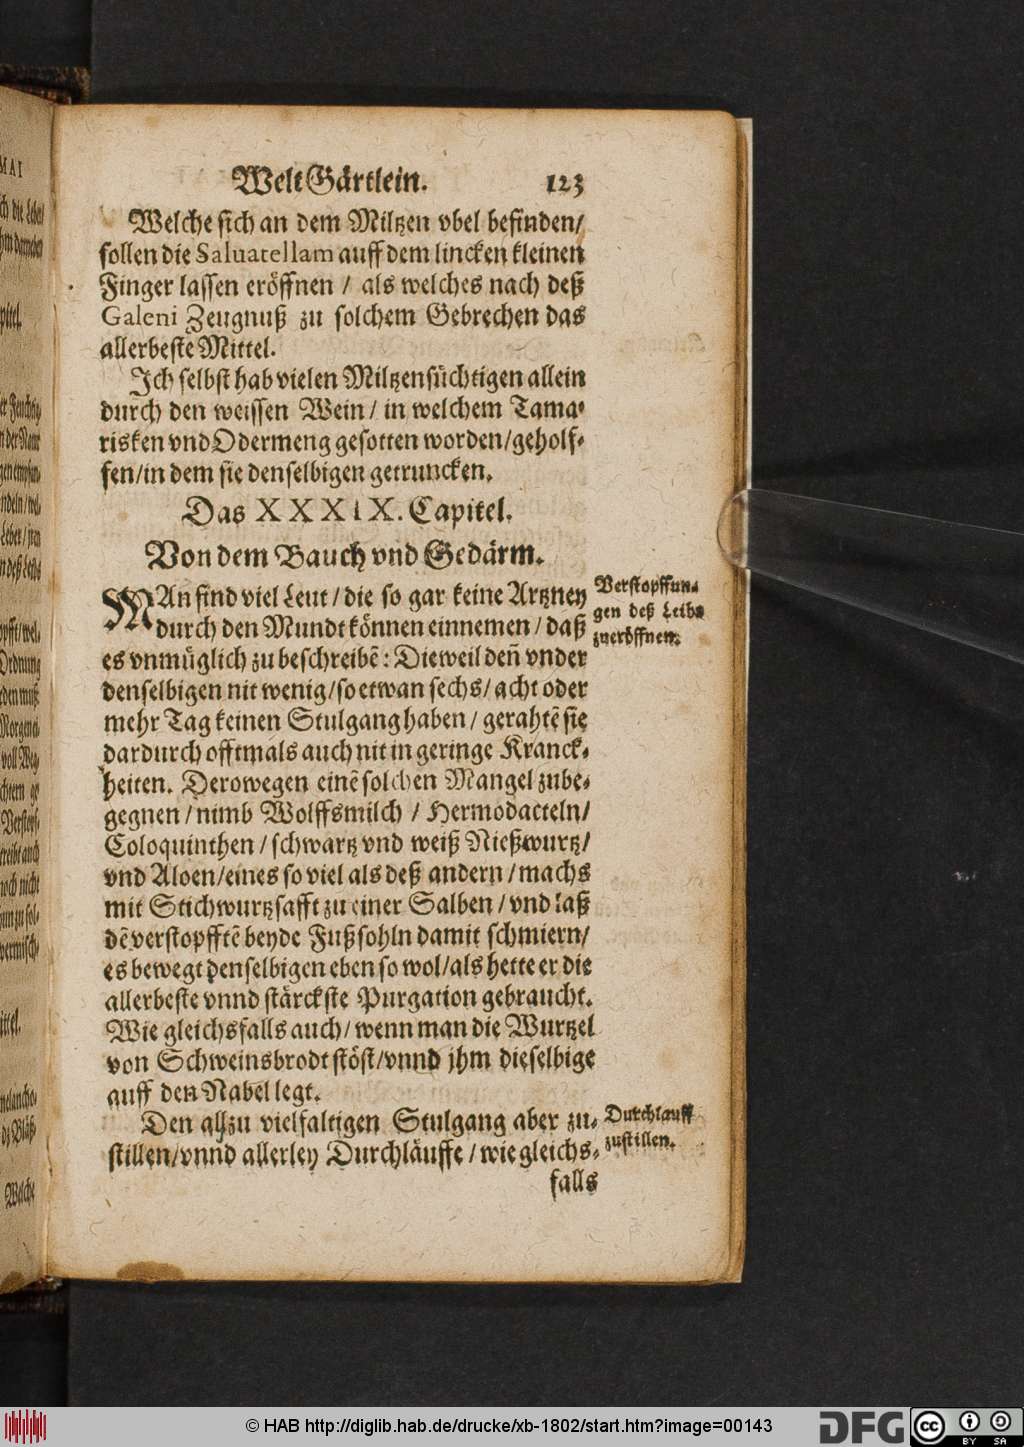 Welt Gärtlein. 123
Welche sich an dem Miltzen vbel befinden/
sollen die Saluatellam auff dem lincken kleinen
Finger lassen eröffnen / als welches nach deß
Galeni Zeugnuß zu solchem Gebrechen das
allerbeste Mittel.
Ich selbst hab vielen Miltzensüchtigen allein
durch den weissen Wein / in welchem Tama-
risken vnd Odermeng gesotten worden/geholf-
fen/in dem sie denselbigen getruncken.
Das XXXIX. Capitel.
Von dem Bauch vnd Gedärm.
MAn find viel Leut / die so gar keine Artzney
durch den Mundt können einnemen / daß
es vnmüglich zu beschreibē : Dieweil den̄ vnder
denselbigen nit wenig/so etwan sechs/acht oder
mehr Tag keinen Stulgang haben / gerahtē sie
dardurch offtmals auch nit in geringe Kranck-
heiten. Derowegen einē solchen Mangel zube-
gegnen / nimb Wolffsmilch / Hermodacteln/
Coloquinthen / schwartz vnd weiß Nießwurtz/
vnd Aloen/eines so viel als deß andern / machs
mit Stichwurtzsafft zu einer Salben / vnd laß
dē verstopfftē beyde Fußsohln damit schmiern/
es bewegt denselbigen eben so wol/als hette er die
allerbeste vnnd stärckste Purgation gebraucht.
Wie gleichsfalls auch/wenn man die Wurtzel
von Schweinsbrodt stöst/vnnd jhm dieselbige
auff den Nabel legt.
Den allzu vielfaltigen Stulgang aber zu-
stillen/vnnd allerley Durchläuffe / wie gleichs-
falls
Verstopffun-
gen deß Leibs
zueröffnen.
Durchlauff
zustillen.
© HAB http://diglib.hab.de/drucke/xb-1802/start.htm?image=00143
DFG
cc BY SA